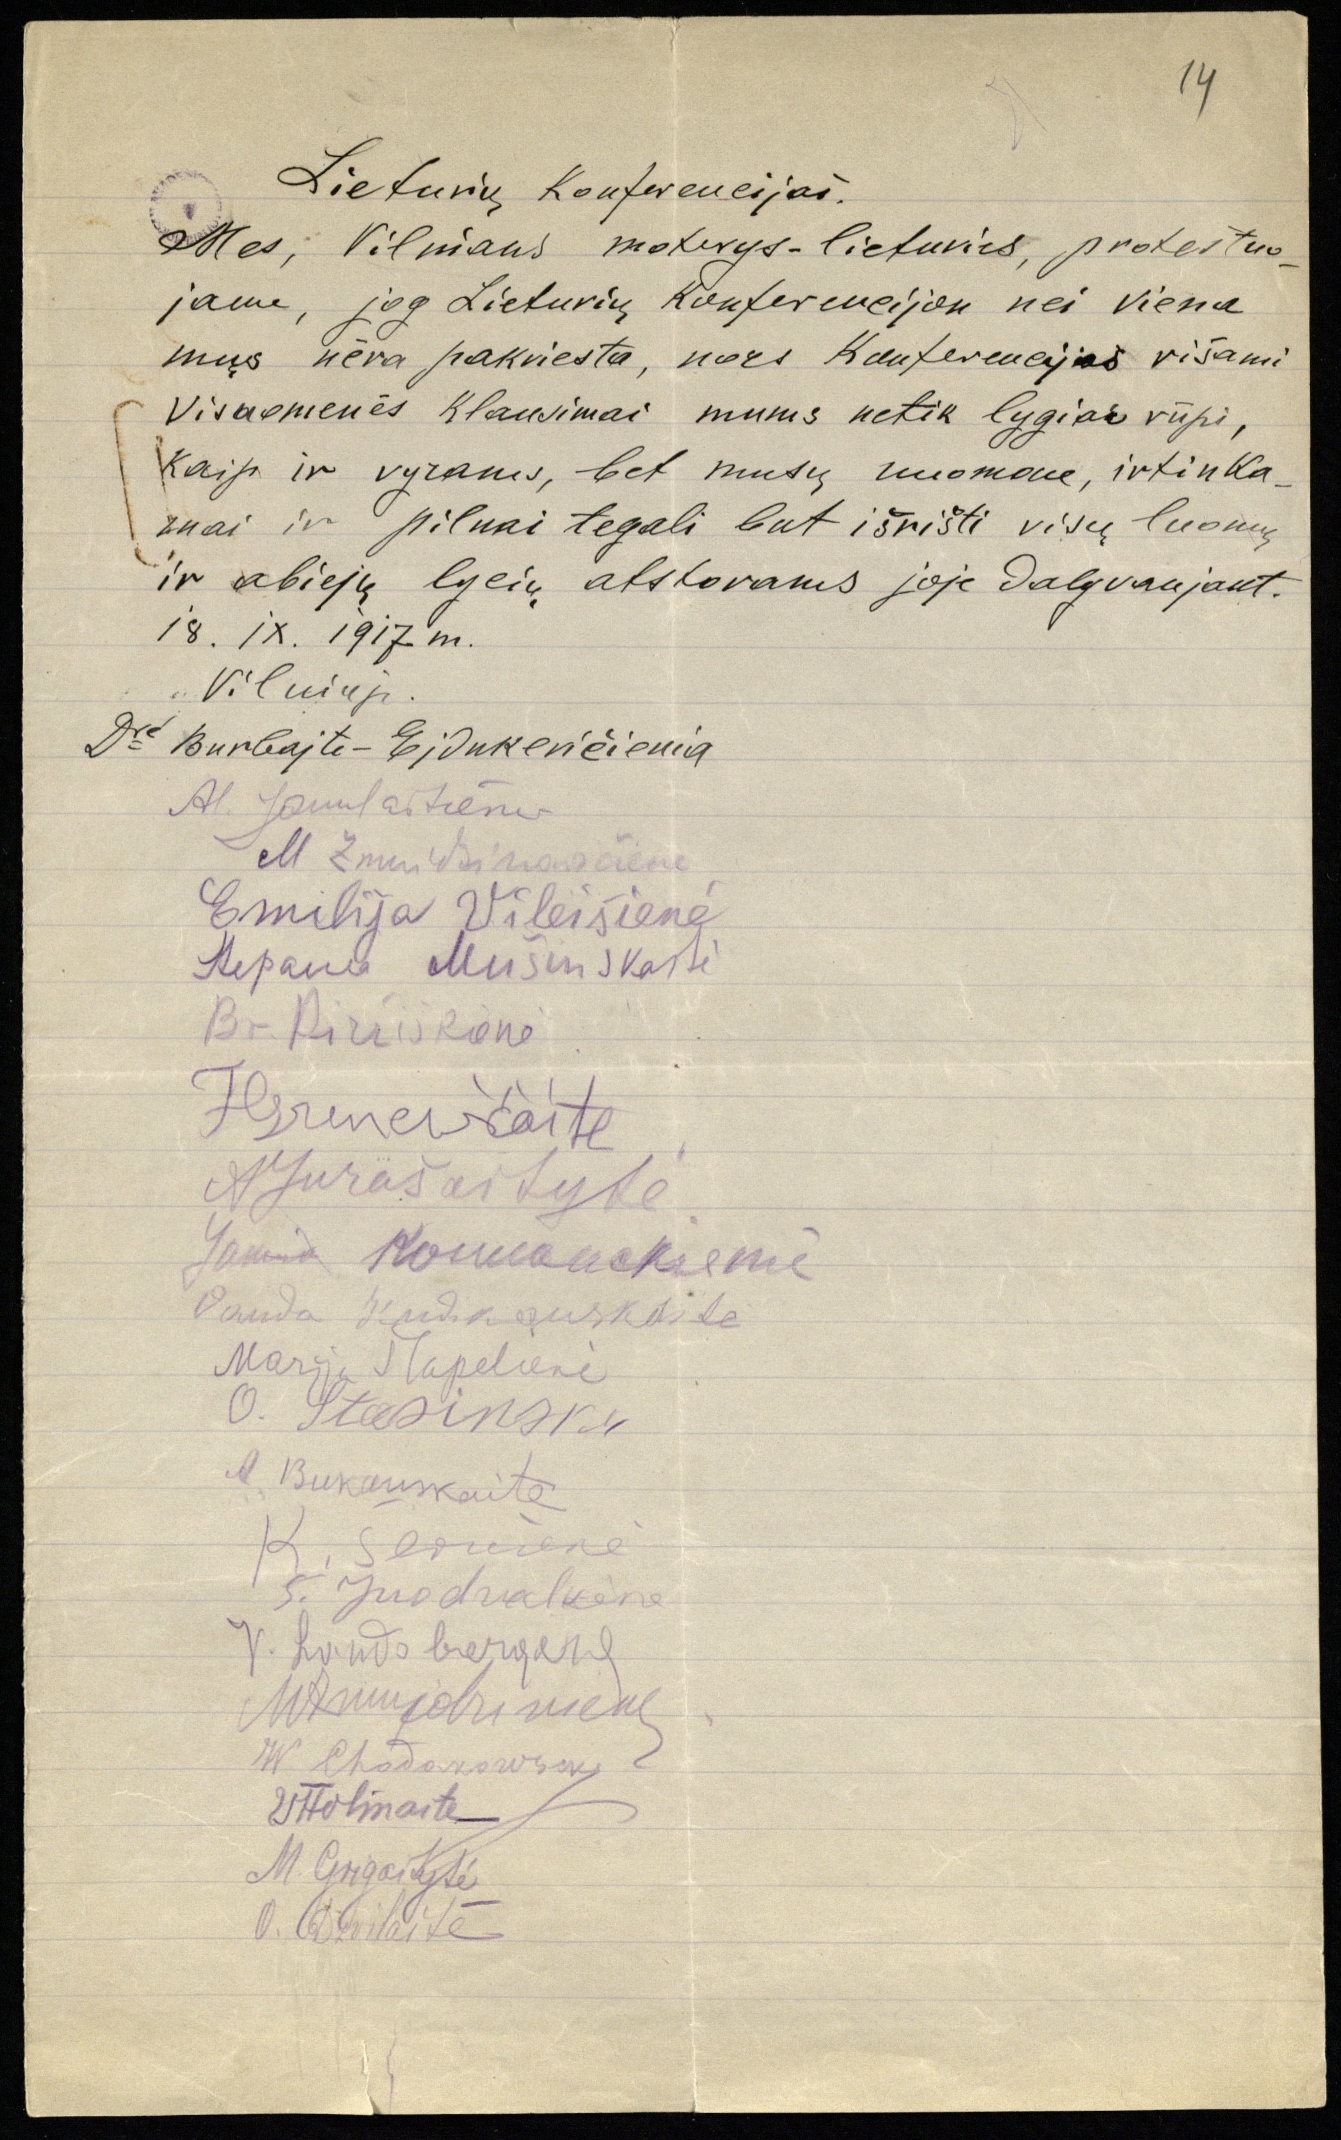 14
Lietuvių Konferencijai.
Mes, Vilniaus moterys-lietuvės, protestuo-
jame, jog Lietuvių Konferencijon nei viena
mųs nėra pakviesta, nors Konferencijos rišami
Visuomenės Klausimai mums netik lygiai rūpi,
Kaip ir vyrams, bet musų nuomone, irtinka-
mai ir pilnai tegali but išrišti visų luomų
ir abiejų lyčių atstovams joje dalyvaujant.
18. IX. 1917 m.
Vilniuje.
Drė Burbajtė-Ejdukevičienia
Al. Janulaitienė
M Žmuidzinavičienė
Emilija Vileišienė
Stepania Mušinskaitė
Br.
A Jurašaitytė
Vanda
Marija Šlapelienė
O. Stasinska
Bukauskaitė
K. Šernienė
S. Juodvalkienė
V. Landsbergienė
W Chodakowska
M. Grigaitytė
O.